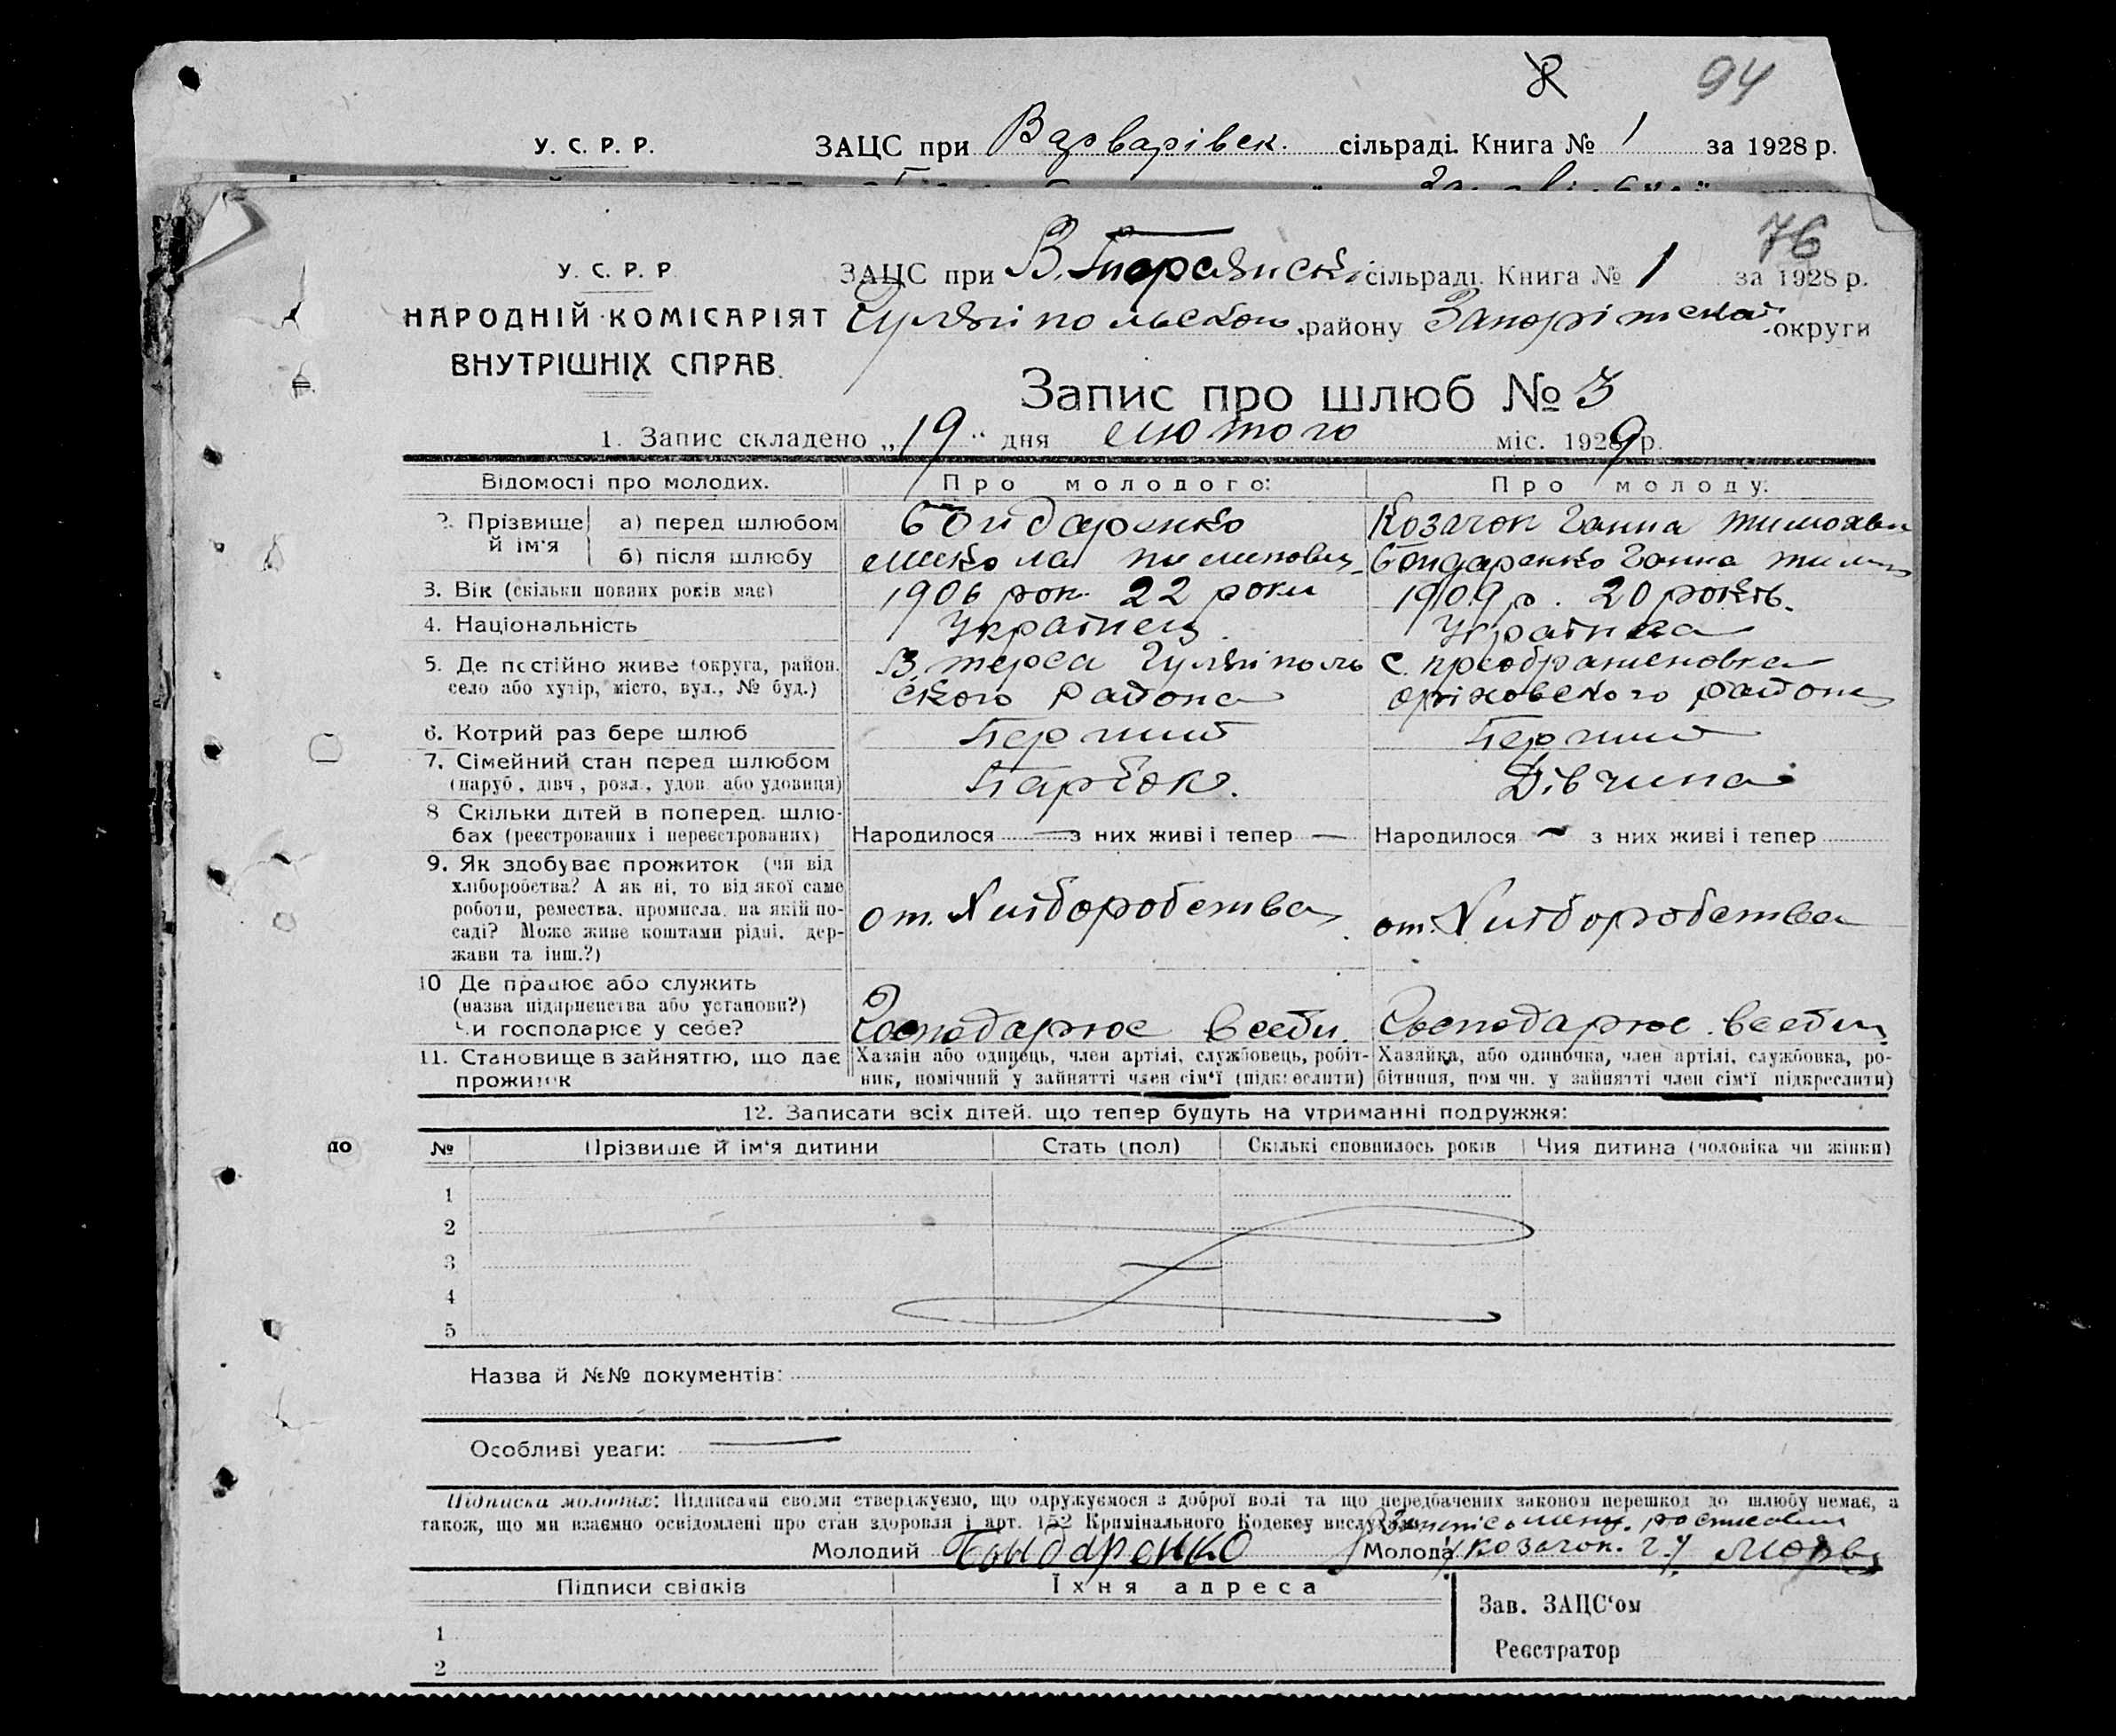 94
У. С. Р. Р. ЗАЦС при Варварівск. сільраді. Книга № 1 за 1928 р.
76
У. С. Р. Р ЗАЦС при сільраді. Книга № 1 за 1928 р.
НАРОДНІЙ КОМІСАРІЯТ
ВНУТРІШНІХ СПРАВ.
району округи
Запис про шлюб № 3
1. Запис складено „19“ дня лютого міс. 1929 р.
Відомості про молодих. Про молодого: Про молоду:
2. Прізвище й ім'я а) перед шлюбом Бондаренко Козачок Ганна
б) після шлюбу Микола Бондаренко Ганна
3. Вік (скільки повних років має) 1906 рок. 22 роки 1909 р. 20 років.
4. Національність Українец Українка
5. Де постійно живе (округа, район. В. терса Гуляйполь с. преображеновка
село або хутір, місто, вул., № буд.) ского района оріховского района
6. Котрий раз бере шлюб Перший Перший
7. Сімейний стан перед шлюбом Парубок. Дівчина
(паруб., дівч., розл., удов. або удовиця)
8 Скільки дітей в поперед. шлю-
бах (реєстрованих і нереєстрованих) Народилося — з них живі і тепер — Народилося ~ з них живі і тепер
9. Як здобуває прожиток (чи від
хліборобства? А як ні, то від якої саме
роботи, ремества, промисла, на якій по- от. Хліборобства от. Хліборобства
саді? Може живе коштами рідні, дер-
жави та інш.?)
10 Де працює або служить
(назва підприємства або установи?)
Чи господарює у себе? Господарює всебя Господарює всебя
11. Становище в зайняттю, що дає Хазяін або одинець, член артілі, службовець, робіт- Хазяйка, або одиночка, член артілі, службовка, ро-
прожиток ник, помічний у зайнятті член сім'ї (підкреслити) бітниця, пом чн. у зайнятті член сім'ї підкреслити)
12. Записати всіх дітей, що тепер будуть на утриманні подружжя:
по
№ Прізвище й ім'я дитини Стать (пол) Скількі сповнилось років Чия дитина (чоловіка чи жінки)
1
2
3
4
5
Назва й №№ документів:
Особливі уваги: —
Підписка молодих: Підписами своїми стверджуємо, що одружуємося з доброї волі та що передбачених законом перешкод до шлюбу немає, а
також, що ми взаємно освідомлені про стан здоровля і арт. 152 Кримінального Кодексу
Молодий Бондаренко Молода Козачок. Г.
Підписи свідків Їхня адреса
Зав. ЗАЦС‘ом
1
Реєстратор
2